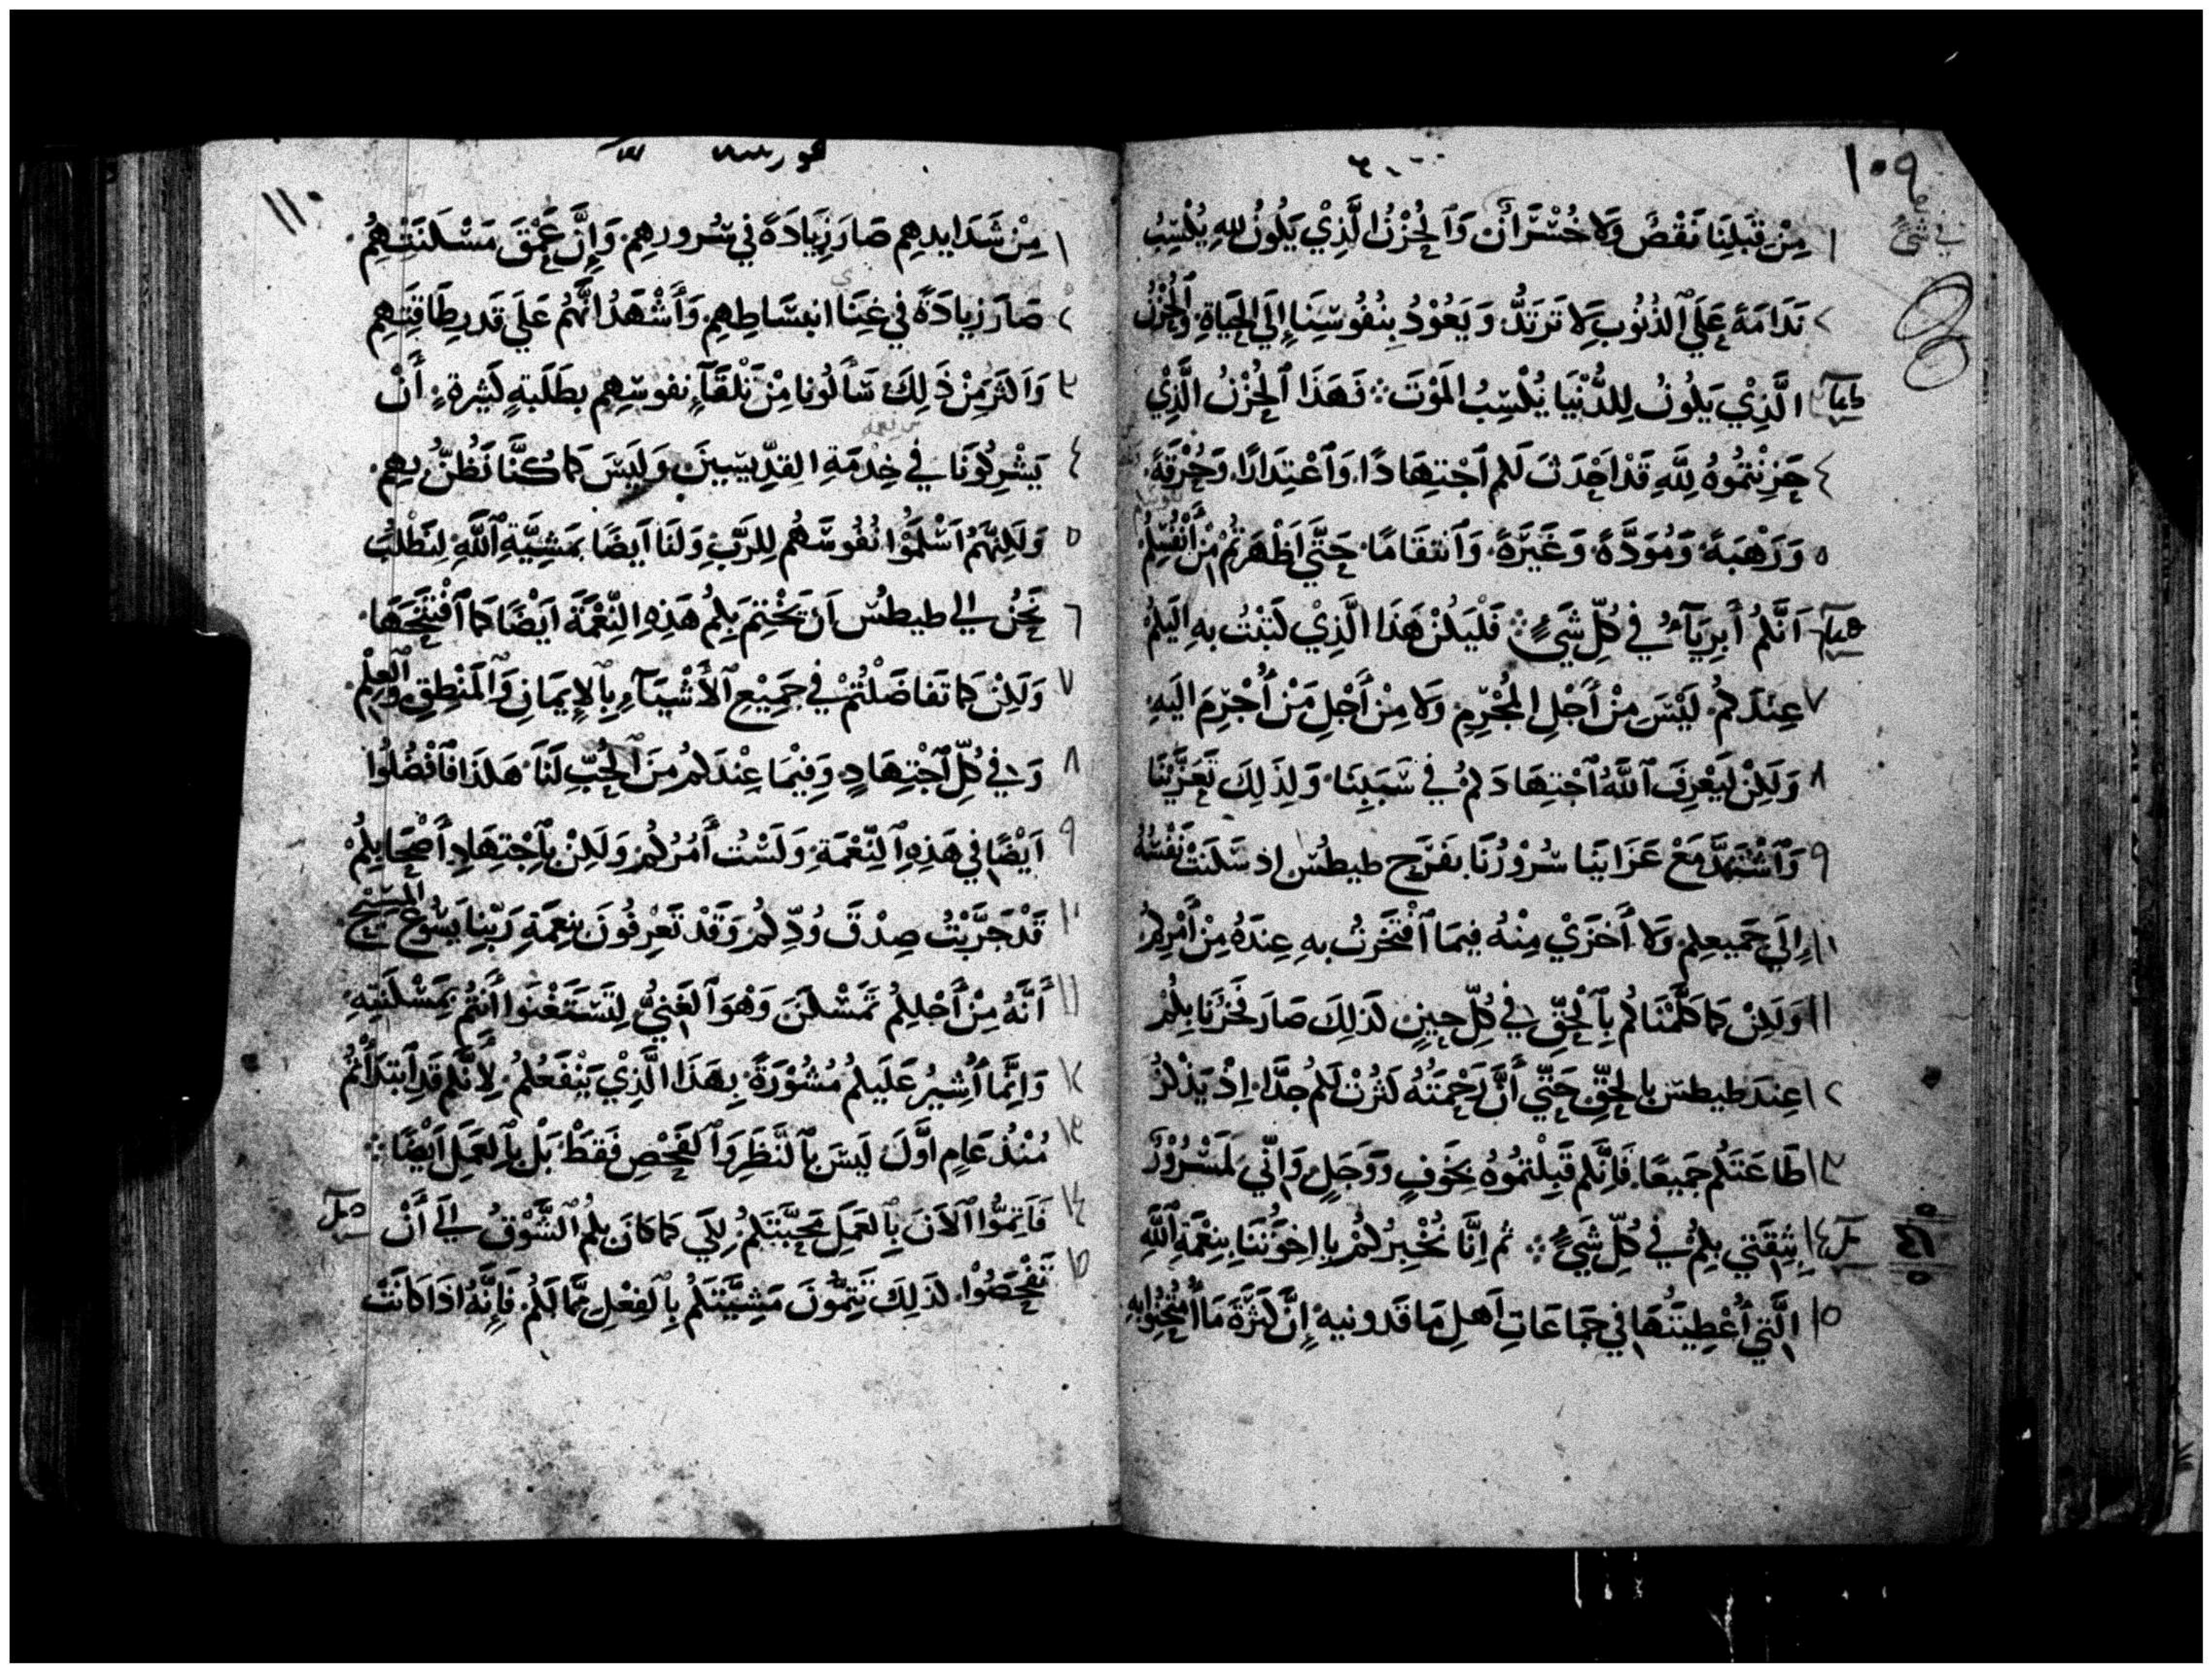 ١٠٩
في شيً
١ مِنْ قِبَلِنَا نَقْصٌ وَلَا خُسْرَانٌ وَٱلحُزْنُ الَّذِيْ يَكُونُ للهِ يُكْسِبُ
٢ نَدَامَةً عَلَي ٱلذُنُوبِ لَا تَرتَدُّ وَيَعُوْدُ بِنُفُوسِنَا إِلَي الحَيَاةِ وَٱلحُزْنُ
الَّذِيْ يَكُونُ لِلدُّنْيَا يُكْسِبُ المَوْتَ ܀ فَهَذَا ٱلحُزْنُ الَّذِيْ
٤ حَزِنْتُمُوهُ لِلَّهِ قَدْ اَحْدَثَ لَكم ٱجْتِهَادًا وَٱعْتِدَارًا وَحُرْقَةً
٥ وَرَهْبَةً وَمُوَدَّةً وَغَيْرَةً وَٱنتقَامًا حَتَّي اَظْهَرتُمْ مِنْ أَنْفُسِكُمْ
اَنَّكُمْ أَبرِيَآءُ في كُلِّ شَيءٍ ܀ فَلْيَكُنْ هَذَا الَّذِيْ كَتَبْتُ بِهِ اِلَيكُمْ
٧ عِندَكُمْ لَيْسَ مِنْ أَجْلِ المُجْرِمِ وَلَا مِنْ أَجْلِ مَنْ أُجْرِمَ اِلَيهِ
٨ وَلَكِنْ لِيَعْرِفَ ٱللَّهُ ٱجْتِهَادَكُمْ في سَبَبِنَا وَلِذَلِكَ تَعَزَّيْنَا
٩ وَٱشْتَدَّ مَعْ عَزَايِنَا سُرُوْرُنَا بفَرَحِ طيطُس اِذ سَكَنَتْ نَفْسُهُ
١٠ إِلَي جَميعِكم وَلَا أَخزَيْ مِنْهُ فِيمَا ٱفْتَخَرتُ بِهِ عِندَهُ مِنْ أَمْرِكُمْ
١١ وَلَكِنْ كمَا كَلَّمْنَاكُم بِٱلْحَقِّ في كُلِّ حِينٍ كَذلِكَ صَارَ فَخْرُنَا بكُمْ
١٢ عِندَ طيطس بالحَقِّ حَتَّي أَنَّ رَحْمَتَهُ كَثُرَتْ لَكُمْ جدًّا اِذْ يَذْكُرُ
١٣ طَاعَتَكُم جَميعًا فَاِنَّكم قَبِلْتمُوهُ بِخَوفٍ وَوَجَلٍ وَاِنِّي لَمَسْرُوْرٌ
١٤ بِثِقَتي بِكُمْ في كُلِّ شَيءٍ ܀ ثم اِنَّا نُخْبِرُكُمْ يا اِخوَتَنَا بِنِعْمَةِ ٱللَّهِ
٤١
١٥ الَّتي أُعْطِيَتْهَا في جَمَاعَاتِ اَهلِ مَاقَدونيه إِنَّ كَثرَةَ مَا ٱمْتُحِنُوا بِهِ
١١٠
١ مِنْ شَدَايدِهِم صَارَ زِيَادَةً في سُرورِهِم وَإِنَّ عَمْقَ مَسْكَنَتِهِمُ
٢ صَارَ زيَادَةً في غِنَا انبسَاطِهِم وَأَشْهَدُ انَّهُم عَلَي قَدرِ طَاقَتِهِم
٣ وَاَكثَرَ مِنْ ذَلِكَ سَأَلُونا مِنْ تَلْقَآءِ نفوسِهِم بطَلَبةٍ كَثيرةٍ أَنْ
٤ يَشْرِكُونَا في خِدْمَةِ القِدِّيسِينَ وَلَيسَ كمَا كُنَّا نَظُنُّ بِهِم
٥ وَلَكِنَّهُمْ اَسْلَمُوا نُفُوسَهُم لِلرَّبِّ وَلَنَا اَيضًا بمَشِيَّةِ ٱللَّهِ لِنَطْلُبَ
٦ نَحْنُ الي طيطُس اَنْ يَخْتِمَ بِكُمْ هَذِهِ اِلنِّعْمَةَ اَيْضًا كمَا ٱفْتَتَحَهَا
٧ وَلَكِنْ كمَا تَفَاضَلْتُمْ في جَميْعِ ٱلأَشْيَآءِ بِٱلاِيمَانِ وَٱلمَنْطِقِ وَٱلعِلْمِ
٨ وَفي كُلِّ ٱجْتِهَادٍ وَفِيْمَا عِنْدَكُم مِنَ ٱلحُبِّ لَنَا هَكَذَا فَٱفْضُلُوا
٩ اَيْضًا في هَذِهِ ٱلنِّعْمَةِ وَلَسْتُ أَمُرُكُمْ وَلَكِنْ بِٱجْتِهَادِ أَصْحَابِكُمْ
١٠ قَدْ جَرَّبْتُ صِدْقَ وُدِّكُمْ وَقَدْ تَعْرِفُونَ نِعمَةِ رَبِّنَا يَسُوْعَ المَسِيْحِ
١١ أَنَّهُ مِنْ أَجْلِكُمْ تَمَسْكَنَ وَهْوَ ٱلغَنِيُّ لِتَسْتَغْنَوا أَنتُمْ بمَسْكَنَتِهِ
١٢ وَاِنَّمَا أُشِيْرُ عَلَيكُمْ مُشُوْرَةً بِهَذَا الَّذِيْ يَنْفَعُكُمْ لِأَنَّكُم قَدِ ٱبتَدَأْتُمْ
١٣ مُنْذُ عَامِ اَوَّلَ لَيسَ بِٱلنَّظَرِ وَٱلفَحْصِ فَقَطْ بَلْ بِٱلعَمَلِ اَيْضًا ܀
١٤ فَاَتِمُّوا ٱلاَنَ بِٱلعَمَلِ مَحَبَّتَكُمْ لِكَي كمَا كَانَ بِكُمُ ٱلشَّوْقُ الي أَنْ
١٥ تَفْحَصُوْا كَذلِكَ تُتِمُّونَ مَشِيَّتَكُمْ بِٱلفِعْلِ مَّا لَكُمْ فَإِنَّهُ اذَا كَانَتْ